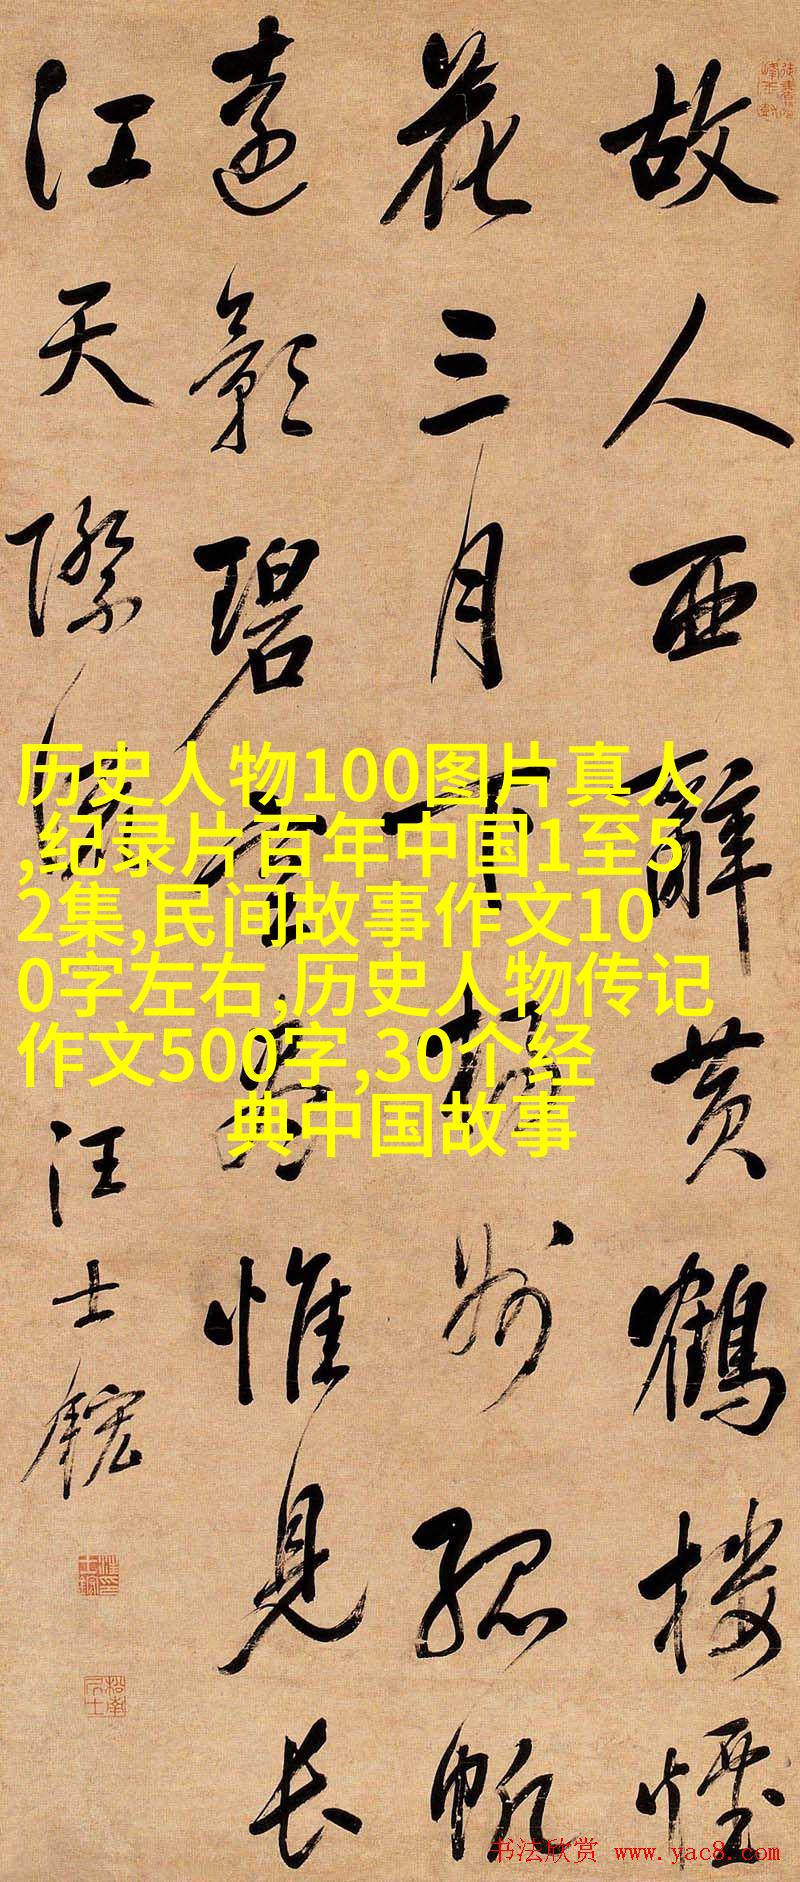 故人西辭黃鶴樓煙
花三月下揚州孤帆
遠影碧空盡惟見長
江天際流
汪士鋐
松南居士
历史人物100图片真人
,纪录片百年中国1至5
2集,民间故事作文10
0字左右,历史人物传记
作文500字,30个经
典中国故事
书法欣赏 www.yac8.com